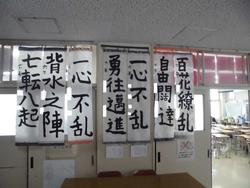 百花繚乱
自由闊達
一心不乱
勇往邁進
一心不乱
背水之陣
七転八起